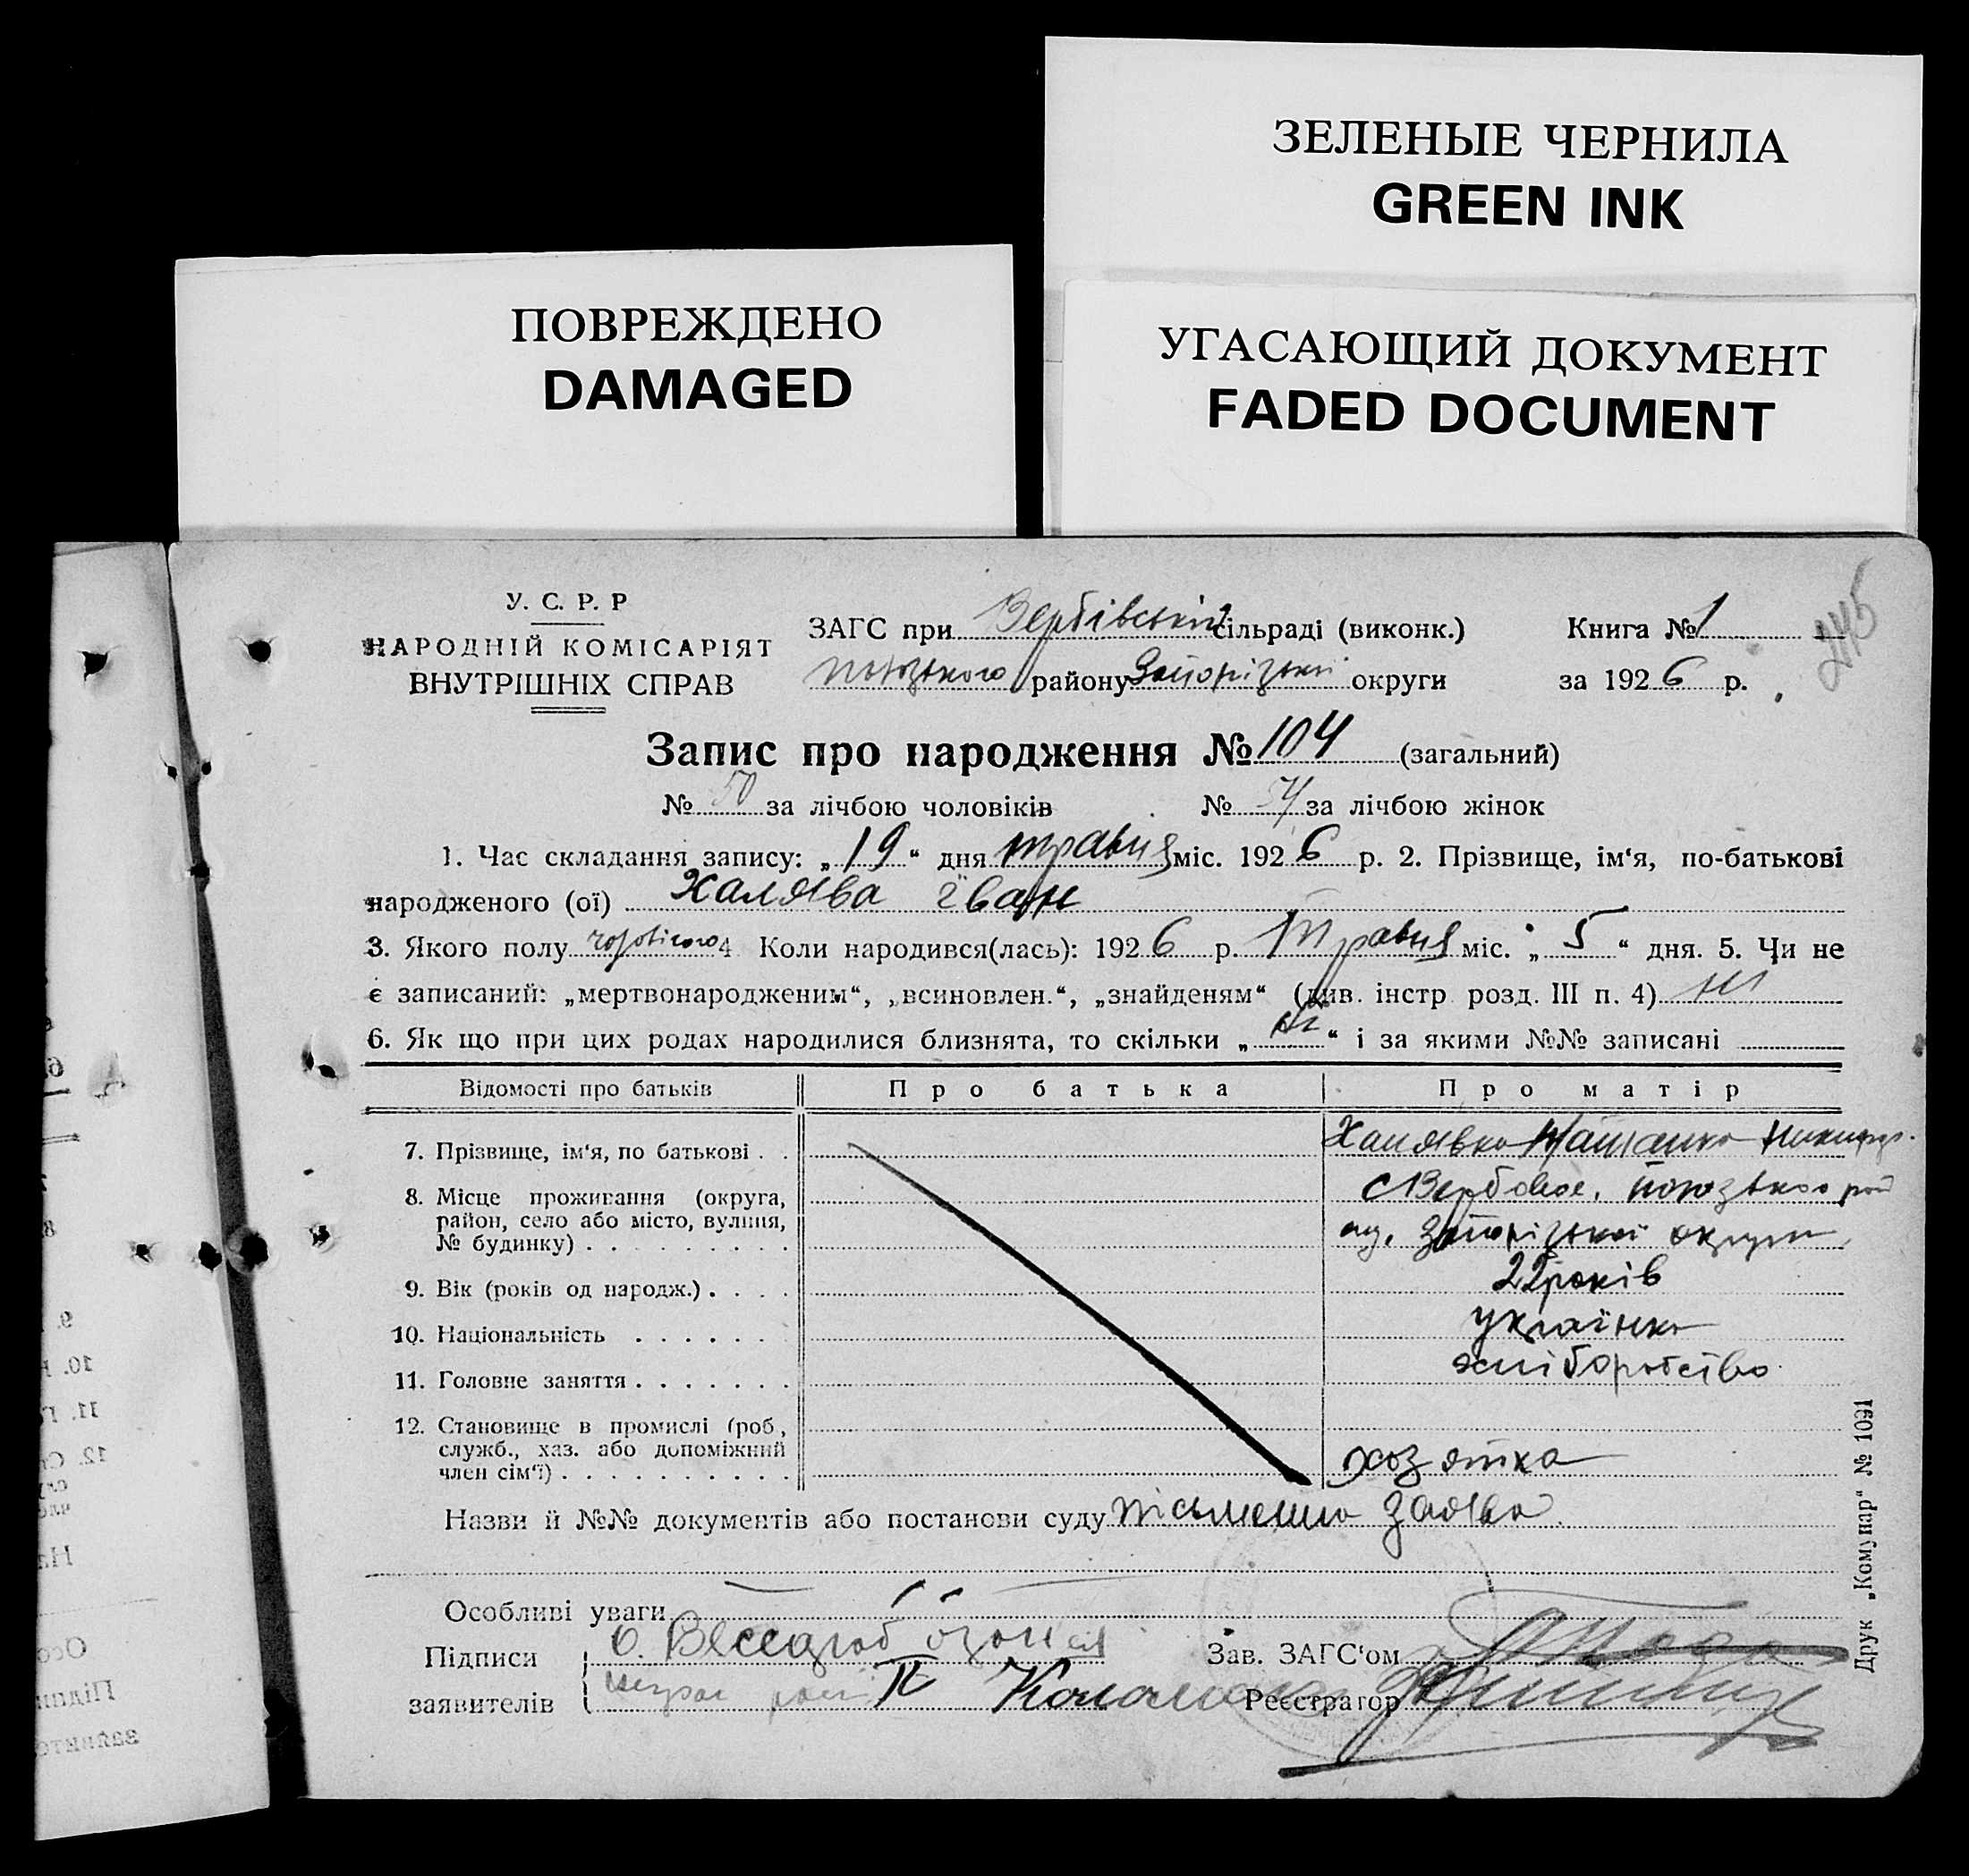 ЗЕЛЕНЫЕ ЧЕРНИЛА
GREEN INK
ПОВРЕЖДЕНО
DAMAGED
УГАСАЮЩИЙ ДОКУМЕНТ
FADED DOCUMENT
У. С. Р. Р
НАРОДНІЙ КОМІСАРІЯТ
ВНУТРІШНІХ СПРАВ
ЗАГС при Вербівській сільраді (виконк.)
району Запорізької округи
Книга № 1
за 1926 р.
245
Запис про народження № 104 (загальний)
№ 50 за лічбою чоловіків № 54 за лічбою жінок
1. Час складання запису: „19“ дня травня міс. 1926 р. 2. Прізвище, ім‘я, по-батькові
народженого (ої) Халява Іван
3. Якого полу чоловічого 4 Коли народився(лась): 1926 р. Травня міс. „5“ дня. 5. Чи не
є записаний: „мертвонародженим“, „всиновлен.“, „знайденям“ (див. інстр розд. III п. 4) ні
6. Як що при цих родах народилися близнята, то скільки „ні“ і за якими №№ записані
Відомості про батьків
Про батька
Про матір
7. Прізвище, ім‘я, по батькові . .
Халявка
8. Місце проживання (округа,
район, село або місто, вулиця,
№ будинку) . . . . . . . . .
с Вербове,
Запорізької округи
9. Вік (років од народж.) . . . .
22 років
10. Національність . . . . . .
українка
11. Головне заняття . . . . . . .
хліборобство
12. Становище в промислі (роб.,
служб., хаз. або допоміжний
член сім‘ї) . . . . . . . . . .
хозяйка
Назви й №№ документів або постанови суду письмена заява
Особливі уваги
Підписи
заявителів
Зав. ЗАГС‘ом
Реєстратор
Друк „Комунар“ № 1091